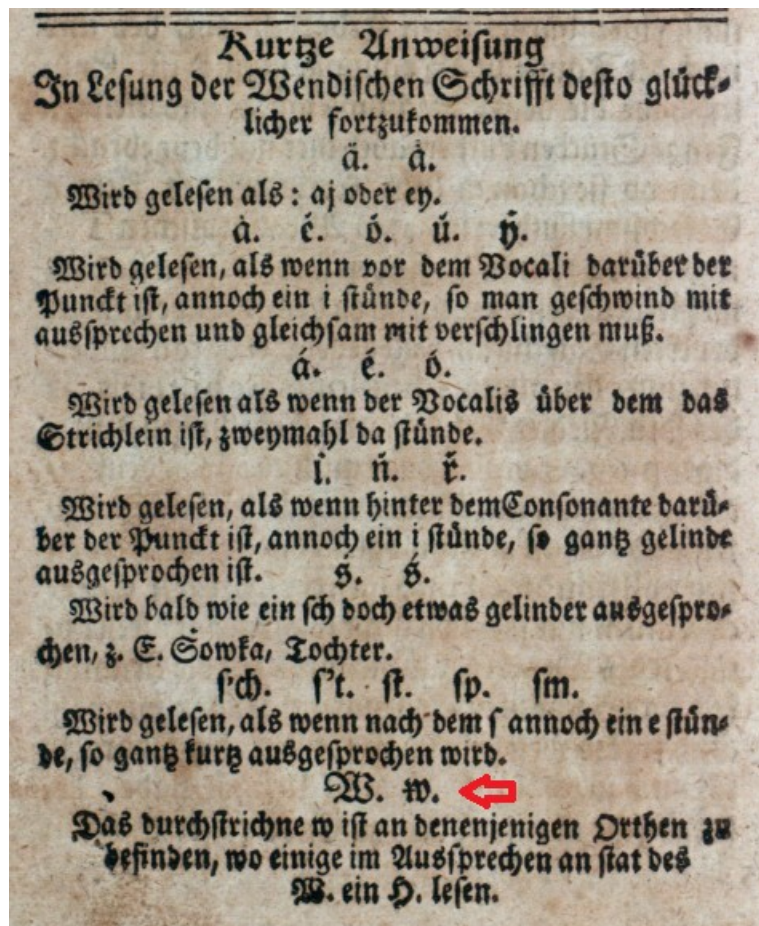 Kurtze Anweisung
In Lesung der Wendischen Schrifft desto glück⸗
licher fortzukommen.
ä. å.
Wird gelesen als: aj oder ey.
ȧ. ė. ȯ. u̇. ẏ.
Wird gelesen, als wenn vor dem Vocali darüber der
Punckt ist, annoch ein i stünde, so man geschwind mit
aussprechen und gleichsam mit verschlingen muß.
á. é. ó.
Wird gelesen als wenn der Vocalis über dem das
Strichlein ist, zweymahl da stünde.
ṅ. ṙ.
Wird gelesen, als wenn hinter dem Consonante darü⸗
ber der Punckt ist, annoch ein i stünde, so gantz gelinde
ausgesprochen ist. ṡ. ṡ.
Wird bald wie ein sch doch etwas gelinder ausgespro⸗
chen, z. E. Ṡowka, Tochter.
s'ch. s't. st. sp. sm.
Wird gelesen, als wenn nach dem s annoch ein e stün⸗
de, so gantz kurtz ausgesprochen wird.
W̵. w̵.
Das durchstrichne w ist an denenjenigen Orthen zu
befinden, wo einige im Aussprechen an stat des
W. ein H. lesen.